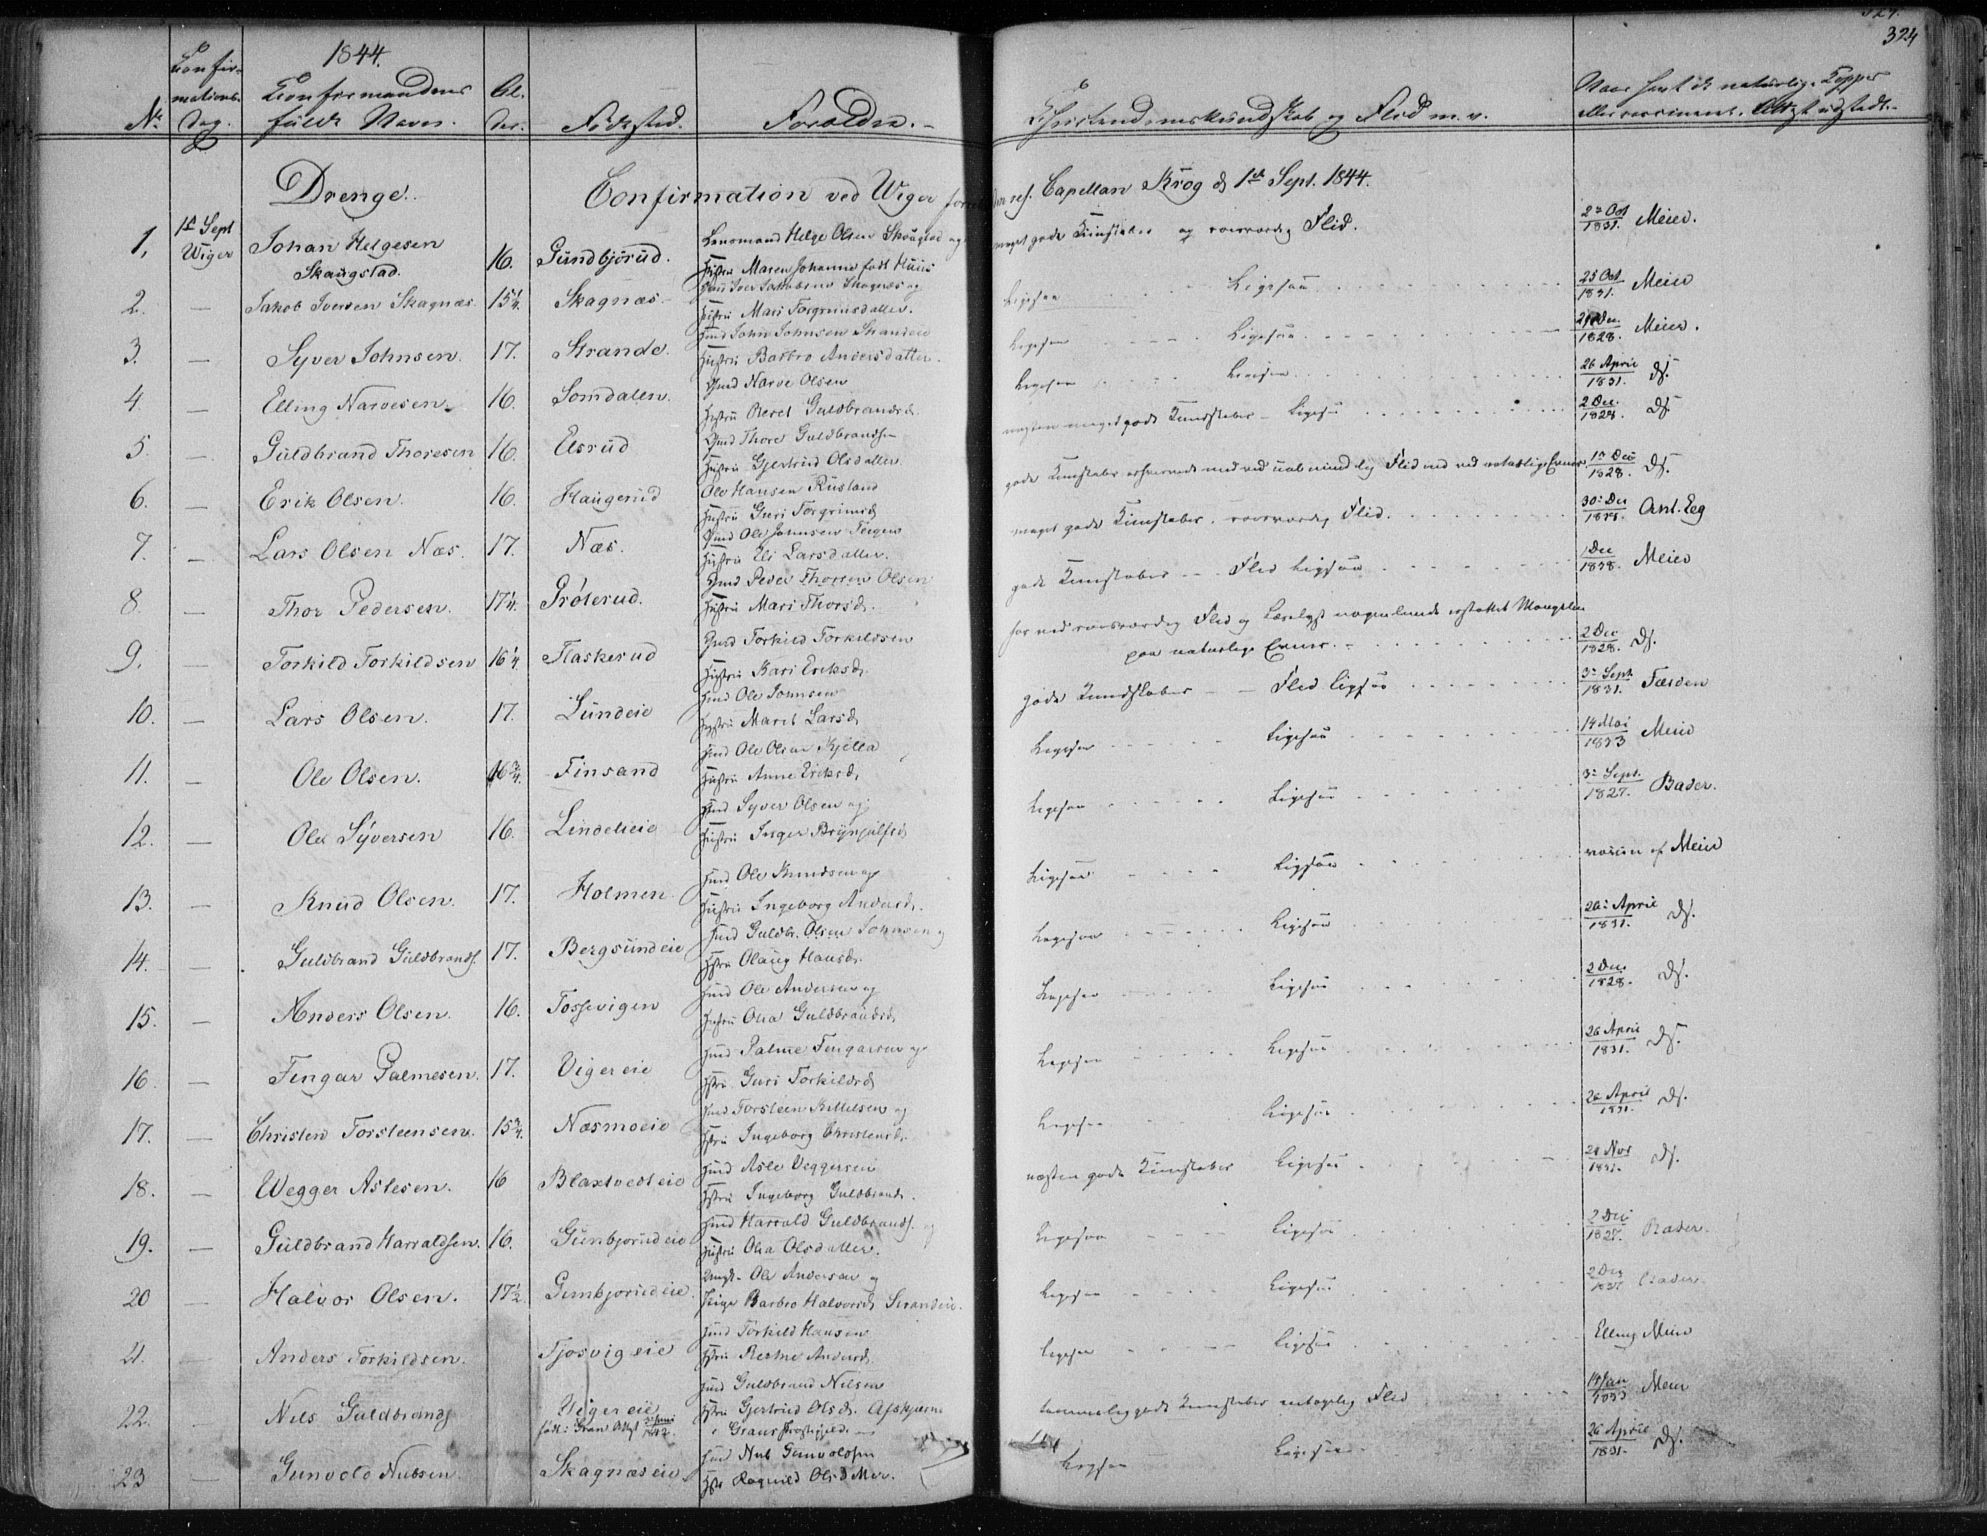 324
1844.
No. Confirmations Dag. Confirmandens fulde Navn. Alder. Fødested. Forældre. Christendomskundskab og Flid m. v. Naar havt de naturlige Kopper eller vaccineret. Attest udstedt.
Drenge. Confirmation ved Wiger res. Capellan Krog d 1ste Sept. 1844.
1. 1ste Sept Wiger Johan Helgesen Skaugstad. 16. Gundbjørud. Lensmand Helge Olsen Skaugstad og Hustru Maren Johanne født meget gode Kundskaber og roesværdig Flid. 2den Oct 1831. Meier.
2. — Jakob Iversen Skagnæs 15¼. Skagnæs Iver Jakobsen Skagnæs og Hustru Mari Torgrimsdatter. Ligesaa Ligesaa 25 Oct 1831. Meier
3. — Syver Johnsen. 17. Strande. Gmd John Johnsen Hustru Barbro Andersdatter. Ligesaa Ligesaa 1828. Meier.
4. — Elling Narvesen. 16. Somdalen. Gmd Narve Olsen Hustru Beret Guldbrandsd. Ligesaa Ligesaa 26 April 1831. Ds.
5. — Guldbrand Thoresen 16. Elsrud Gmd Thore Guldbrandsen Hustru Gjertrud Olsdatter. næsten meget gode Kundskaber — Ligesaa 2 Dec. 1828. Ds
6. — Erik Olsen. 16. Haugerud Ole Hansen Rusland Hustru Guri Torgrimsd gode Kundskaber Flid 1ste Dec 1828. Ds.
7. — Lars Olsen Næs. 17. Næs. Gmd Ole Johnsen Teigen Hustru Eli Larsdatter. meget gode Kundskaber. roesværdig Flid. 30te Dec Ant. Eeg
8. — Thor Pedersen. 17¼. Prøterud. Gmd Peder Thorsen Olsen Hustru Mari Thorsd. gode Kundskaber — Flid Ligesaa Dec Meier
9. — Torkild Torkildsen 16¼ Flaskerud Gmd Torkild Torkildsen Hustru Kari Eriksd. har ved roesværdig Flid og Lærelyst nogenlunde erstattet Mangelen paa naturlige Evner. 2 Dec 1828. Ds.
10. — Lars Olsen. 17. Lundeie Hmd Ole Johnsen Hustru Marit Larsd. gode Kundskaber — Flid ligesaa 3te Sept 1831. Færden
11. — Ole Olsen. 16¾. Finsand Hmd Ole Olsen Kjella Hustru Anne Eriksd. Ligesaa Ligesaa 14 Mai 1833 Meier
12. — Ole Syversen 16. Lindelieie Hmd Syver Olsen og Hustru Inger Brynjulfsd Ligesaa Ligesaa 3te Sept. 1827. Bader.
13. — Knud Olsen. 17. Holmen Hmd Ole Knudsen og Hustru Ingeborg Andersd. Ligesaa Ligesaa vaccin af Meier
14. — Guldbrand Guldbrands. 17. Bergsundeie Hmd Guldbr. Olsen og Hstru Olaug Hansd. Ligesaa Ligesaa 26de April 1831. Ds.
15. — Anders Olsen. 16. Tossevigen Hmd Ole Andersen og Hustru Olia Guldbrandsd. Ligesaa Ligesaa 2 Dec. 1828. Ds.
16. — Fingar Palmesen. 17. Vigereie Hmd Palme Fingarsen og Hstru Guri Torkildsd Ligesaa Ligesaa 26 April 1831. Ds.
17. — Christen Torsteensen. 15¾. Næsmoeie Hmd Torsteen Kittilsen og Hstru Ingeborg Christensd. Ligesaa Ligesaa 26 April 1831. Ds.
18. — Wegger Aslesen. 16 Blaxtvedteie Hmd Asle Veggersen Hstru Ingeborg Guldbrands. næsten gode Kundskaber Ligesaa 21 Nov 1831. Ds.
19. — Guldbrand Harraldsen. 16. Gunbjorudeie Hmd Harrald Guldbrands. og Hustru Olia Olsdatter. Ligesaa Ligesaa 2 Dec 1827. Bader.
20 — Halvor Olsen. 17½. Gunbjorudeie. Ole Andersen og Pige Barbro Halvorsd. Ligesaa Ligesaa 2 Dec Bader.
21. — Anders Torkildsen. Tjosvigeie Hmd Torkild Hansen Hstru Anders. Ligesaa Ligesaa Elling Meier
22. — Nils Guldbrands. Vigereie født i Gran Attest 1842. Hmd Guldbrand Nilsen Hstru Gjertrud Olsd. i Grans Præstegjeld temmelig gode Kundskaber Flid 14 Jan 1833 Meier
23 — Gunvold Nubsen Skagnæseie Hmd Nub Gunvoldsen Hstr Ragnild Olsdatter. Ligesaa Ligesaa 26 April 1831. Ds.